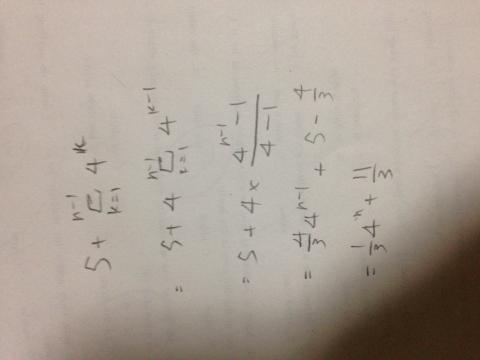 5 + \sum_{k=1}^{n-1} 4^k
= 5 + 4 \sum_{k=1}^{n-1} 4^{k-1}
= 5 + 4 × \frac{4^{n-1} - 1}{4 - 1}
= \frac{4}{3} 4^{n-1} + 5 - \frac{4}{3}
= \frac{1}{3} 4^n + \frac{11}{3}